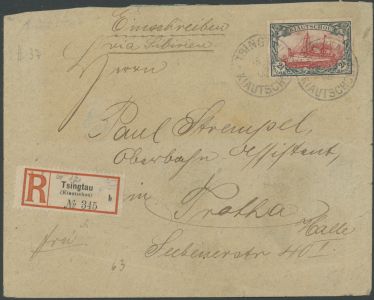 Einschreiben
via Sibirien
Herrn
TSINGTAU
KIAUTSCHOU
KIAUTSCHOU
Paul Strempel,
Oberbahn Assistent,
in Trotha
Halle
Seebenerstraße 40 I
R
Tsingtau
(Kiautschou)
№ 345
b
63